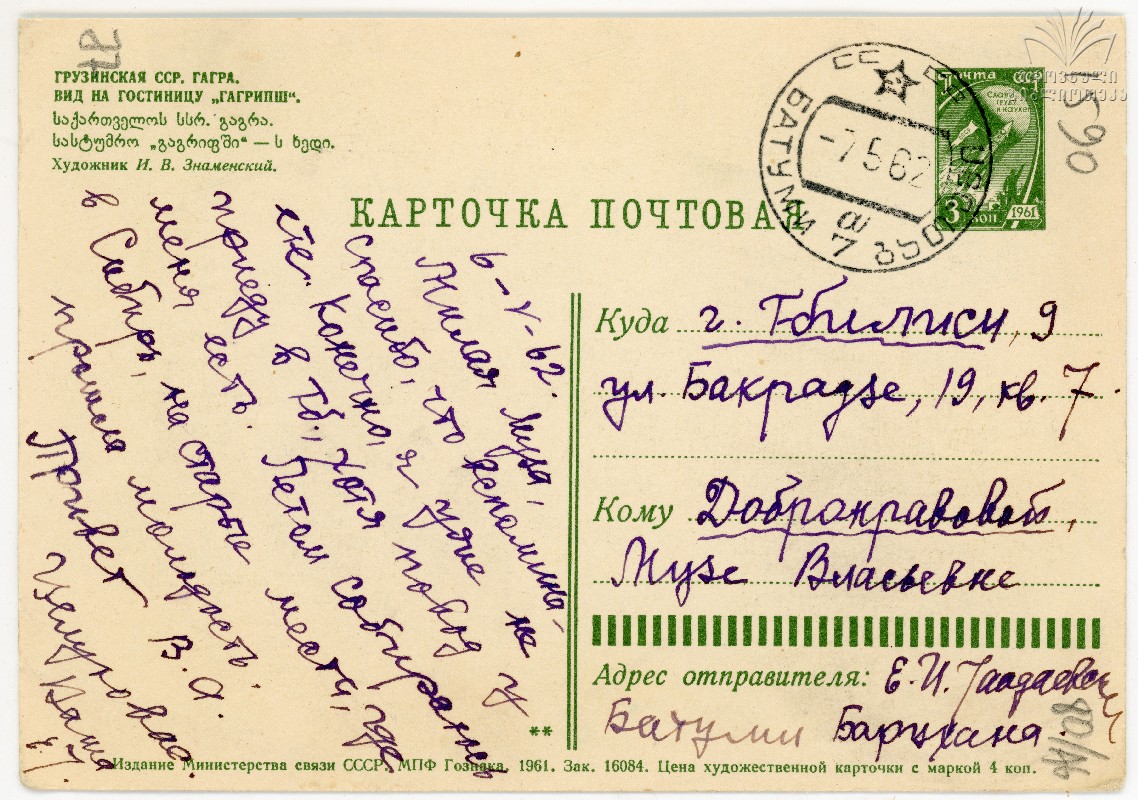 ГРУЗИНСКАЯ ССР. ГАГРА.
ВИД НА ГОСТИНИЦУ „ГАГРИПШ“.
საქართველოს სსრ. გაგრა.
სასტუმრო „გაგრიფში“ — ს ხედი.
Художник И. В. Знаменский.
КАРТОЧКА ПОЧТОВАЯ
БАТУМИ
-7 5 62
ПОЧТА СССР
СЛАВА ТРУДУ И НАУКЕ
3 КОП
1961
37
090
6-V-62.
Милая Муза,
спасибо, что вспомина-
ете. Конечно, я уже не
приеду в Тб., хотя повод у
меня есть. Летом собираюсь
в Сибирь, на старые места, где
прошла молодость.
Привет В. А.
Целую Ваша
Куда г. Тбилиси, 9
ул. Бакрадзе, 19, кв. 7.
Кому Добронравовой,
Музе Власьевне
Адрес отправителя: Е. И.
Батуми Барцхана.
**
Издание Министерства связи СССР. МПФ Гознака. 1961. Зак. 16084. Цена художественной карточки с маркой 4 коп.